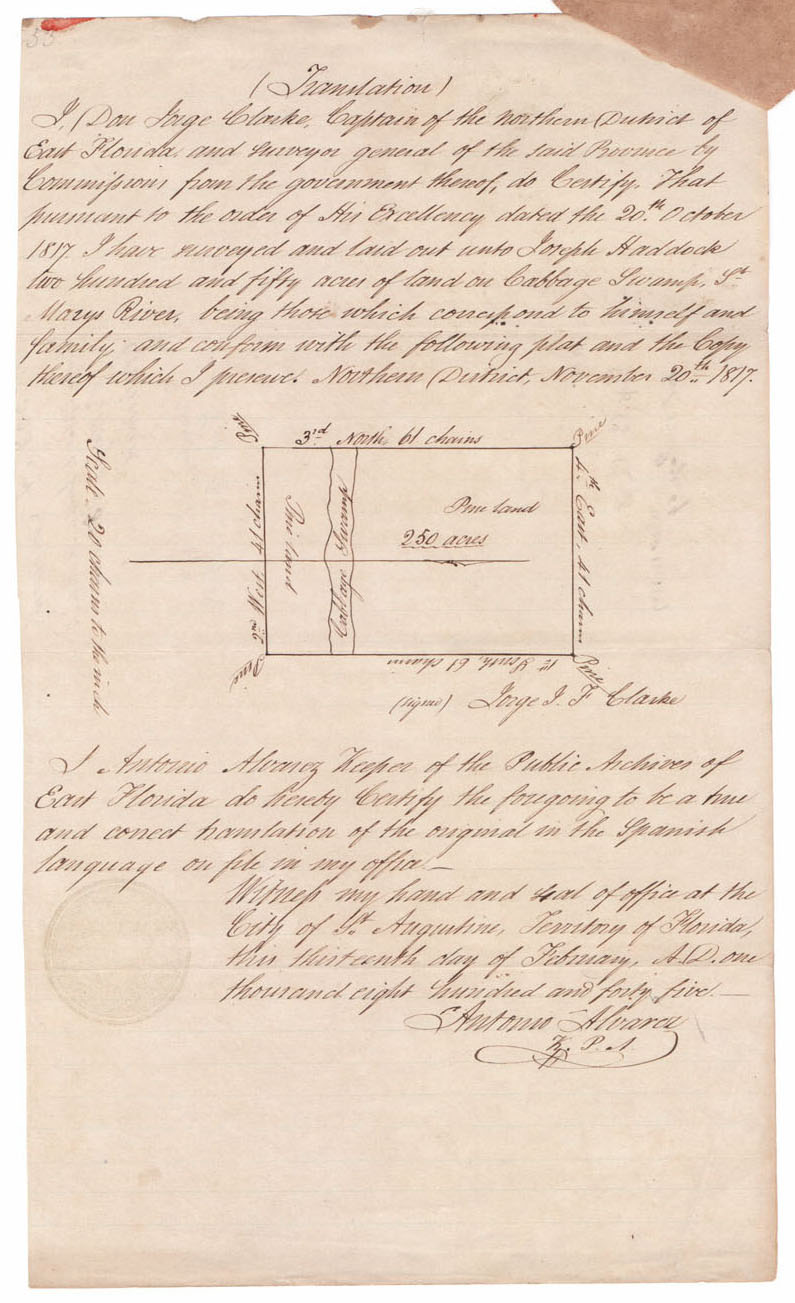 53
(Translation)
I, Don Jorge Clarke, Captain of the northern District of
East Florida, and surveyor general of the said Province by
Commission from the government thereof, do Certify, That
pursuant to the order of His Excellency dated the 20th October
1817. I have surveyed and laid out unto Joseph Haddock
two hundred and fifty acres of land on Cabbage Swamp, St
Marys River, being those which correspond to himself and
family; and conform with the following plat and the Copy
thereof which I preserve. Northern District, November 20th 1817.
Pine
3rd North, 61 chains
Pine
Scale 20 chains to the inch
2nd West 41 chains
Pine land
Cabbage Swamp
Pine land
250 acres
4th East, 41 chains
Pine
1st South, 61 chains
Pine
(signed) Jorge J. F Clarke
I Antonio Alvarez Keeper of the Public Archives of
East Florida do hereby Certify the foregoing to be a true
and correct translation of the original in the Spanish
language on file in my office.—
Witness my hand and seal of office at the
City of St Augustine, Territory of Florida,
this thirteenth day of February, A.D. one
thousand eight hundred and forty five.—
Antonio Alvarez
K. P. A.